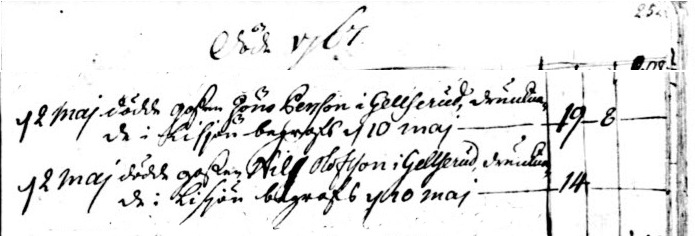 252
Döde 1767
d 2 maj dödde gossen Jöns Persson i Gellserud, drunkna-
de i Kisjön begrafs d 10 maj 19 8
d 2 maj dödde gossen Nils Olofsson i Gellserud, drunkna-
de i Kisjön begrafs d 10 maj 14